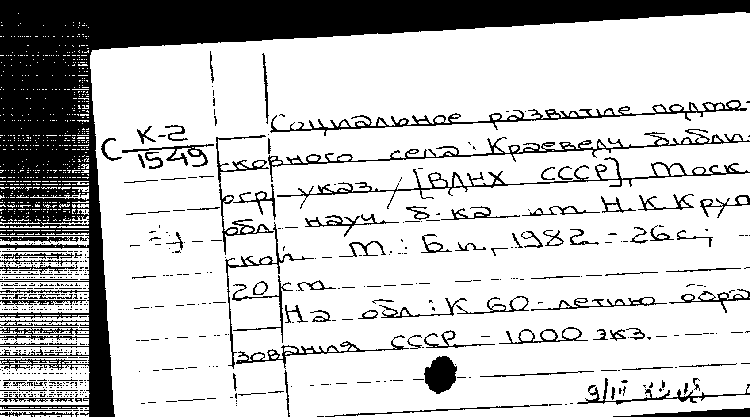 Социальное развитие подмо-
С К-2
1549
сковного села: Краеведч. библи-
огр. указ. / [ВДНХ СССР], Моск.
обл. науч. б-ка им. Н.К Круп
ской. М.: Б.и., 1982. - 26с.;
20 см.
На обл.: К 60-летию обра
зования СССР - 1000 экз.
9/IV